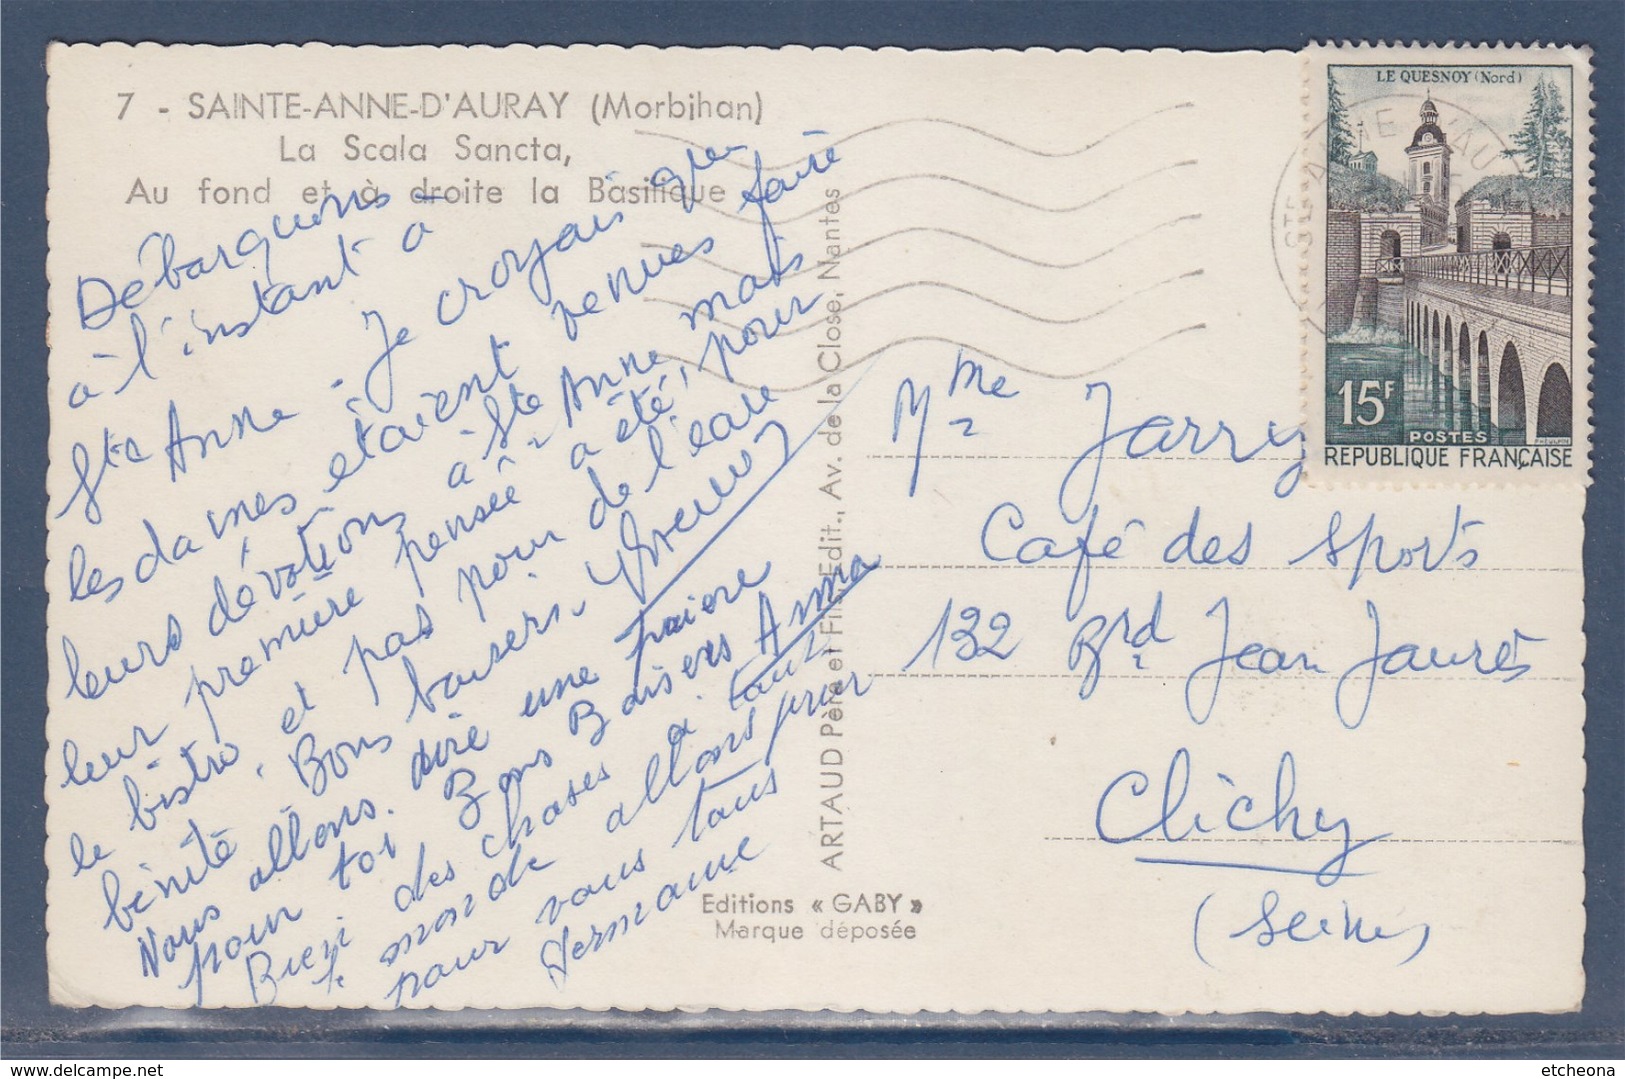 7 - SAINTE-ANNE-D'AURAY (Morbihan)
La Scala Sancta,
Au fond et à droite la Basilique
Débarquons
à l'instant a
Ste Anne - Je croyais que
les dames étaient venues faire
leurs dévotions a Ste Anne, mais
leur première pensée a été, pour
le bistro et pas pour de l'eau
bénite. Bons baisers.
Nous allons dire une priere
pour toi Bons Baisers Anna
Bien des choses a tout
le monde allons prier
pour vous tous
Germaine
ARTAUD Père et Fils, Edit., Av. de la Close, Nantes
Editions « GABY »
Marque déposée
LE QUESNOY (Nord)
15F
POSTES
REPUBLIQUE FRANÇAISE
STE ANNE D'AU
Mme Jarry
Café des Sports
132 Brd Jean Jaurès
Clichy
(Seine)
etcheona